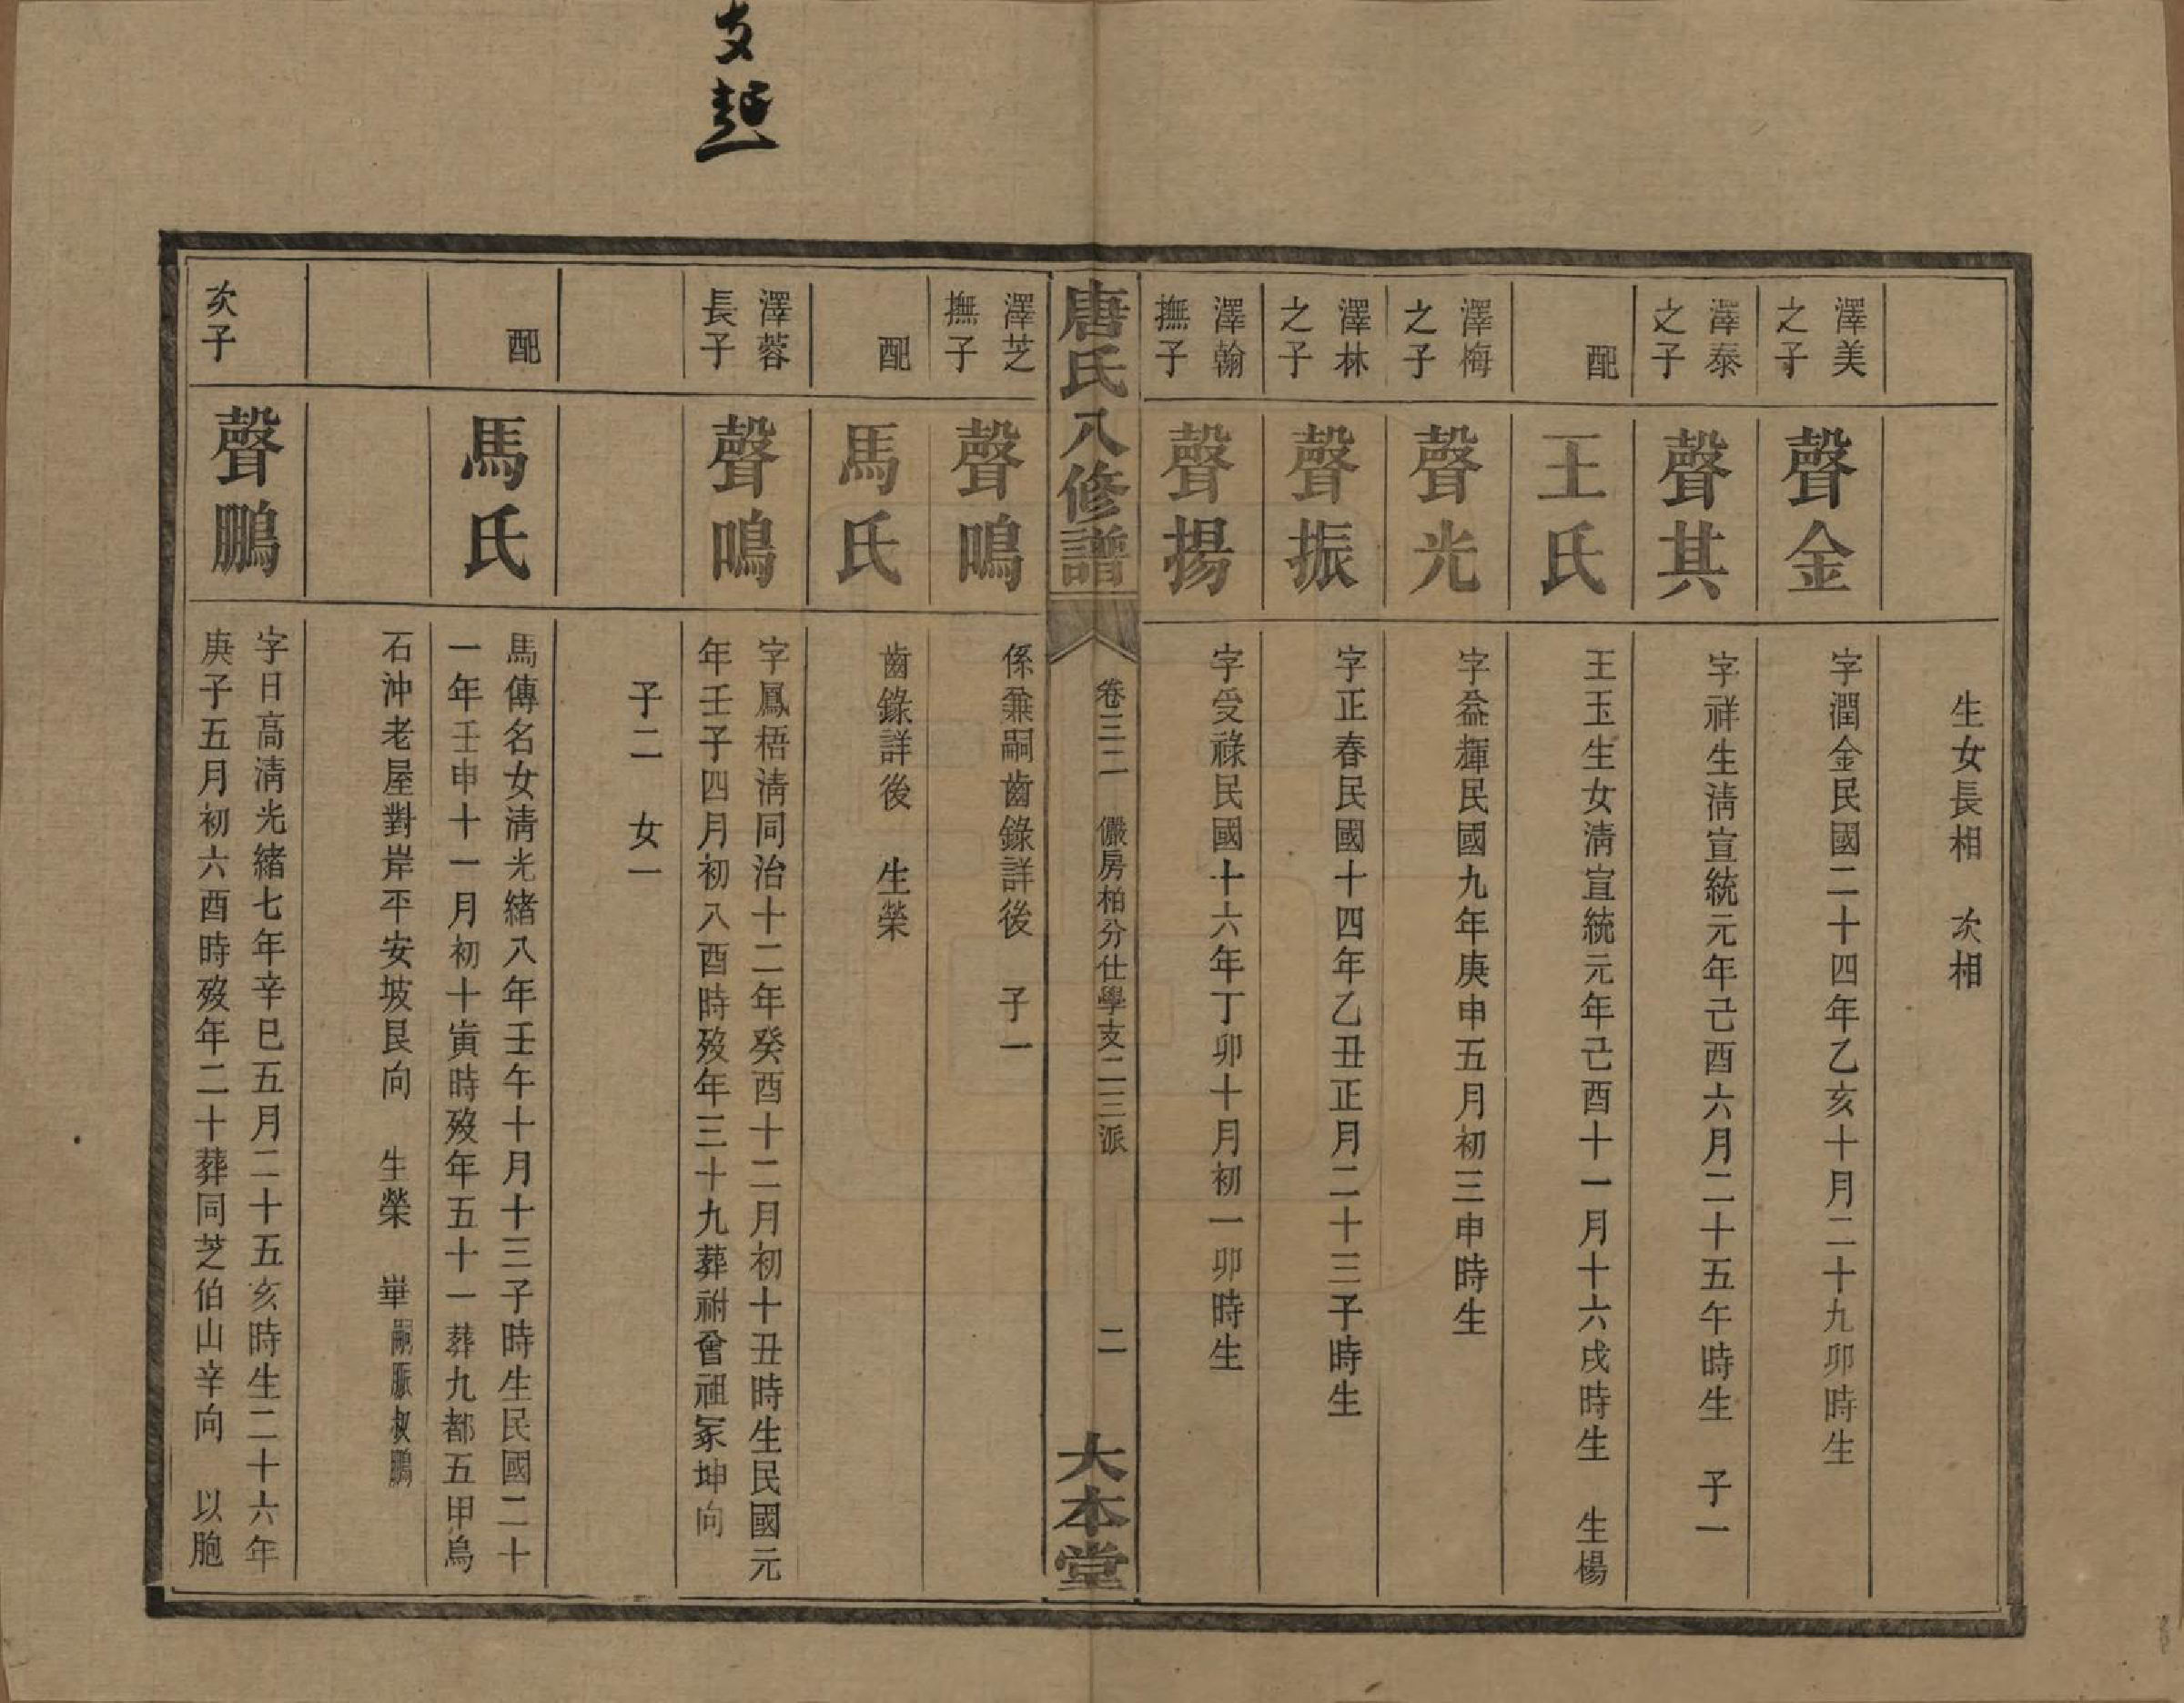 支起
生女長相　次相
澤美之子
聲金
字潤金民國二十四年乙亥十月二十九卯時生
澤泰之子
聲其
字祥生淸宣統元年己酉六月二十五午時生　子一
配
王氏
王玉生女淸宣統元年己酉十一月十六戌時生　生楊
澤梅之子
聲光
字益輝民國九年庚申五月初三申時生
澤林之子
聲振
字正春民國十四年乙丑正月二十三子時生
澤翰撫子
聲揚
字受祿民國十六年丁卯十月初一卯時生
唐氏八修譜
卷三二　儼房柏分仕學支二三派
二
大本堂
澤芝撫子
聲鳴
係兼嗣齒錄詳後　子一
配
馬氏
齒錄詳後　生榮
澤蓉長子
聲鳴
字鳳梧淸同治十二年癸酉十二月初十丑時生民國元
年壬子四月初八酉時歿年三十九葬祔曾祖冢坤向
子二　女一
配
馬氏
馬傳名女淸光緒八年壬午十月十三子時生民國二十
一年壬申十一月初十寅時歿年五十一葬九都五甲烏
石沖老屋對岸平安坡艮向　生榮　崋嗣脈叔鵬
次子
聲鵬
字日高淸光緒七年辛巳五月二十五亥時生二十六年
庚子五月初六酉時歿年二十葬同芝伯山辛向　以胞